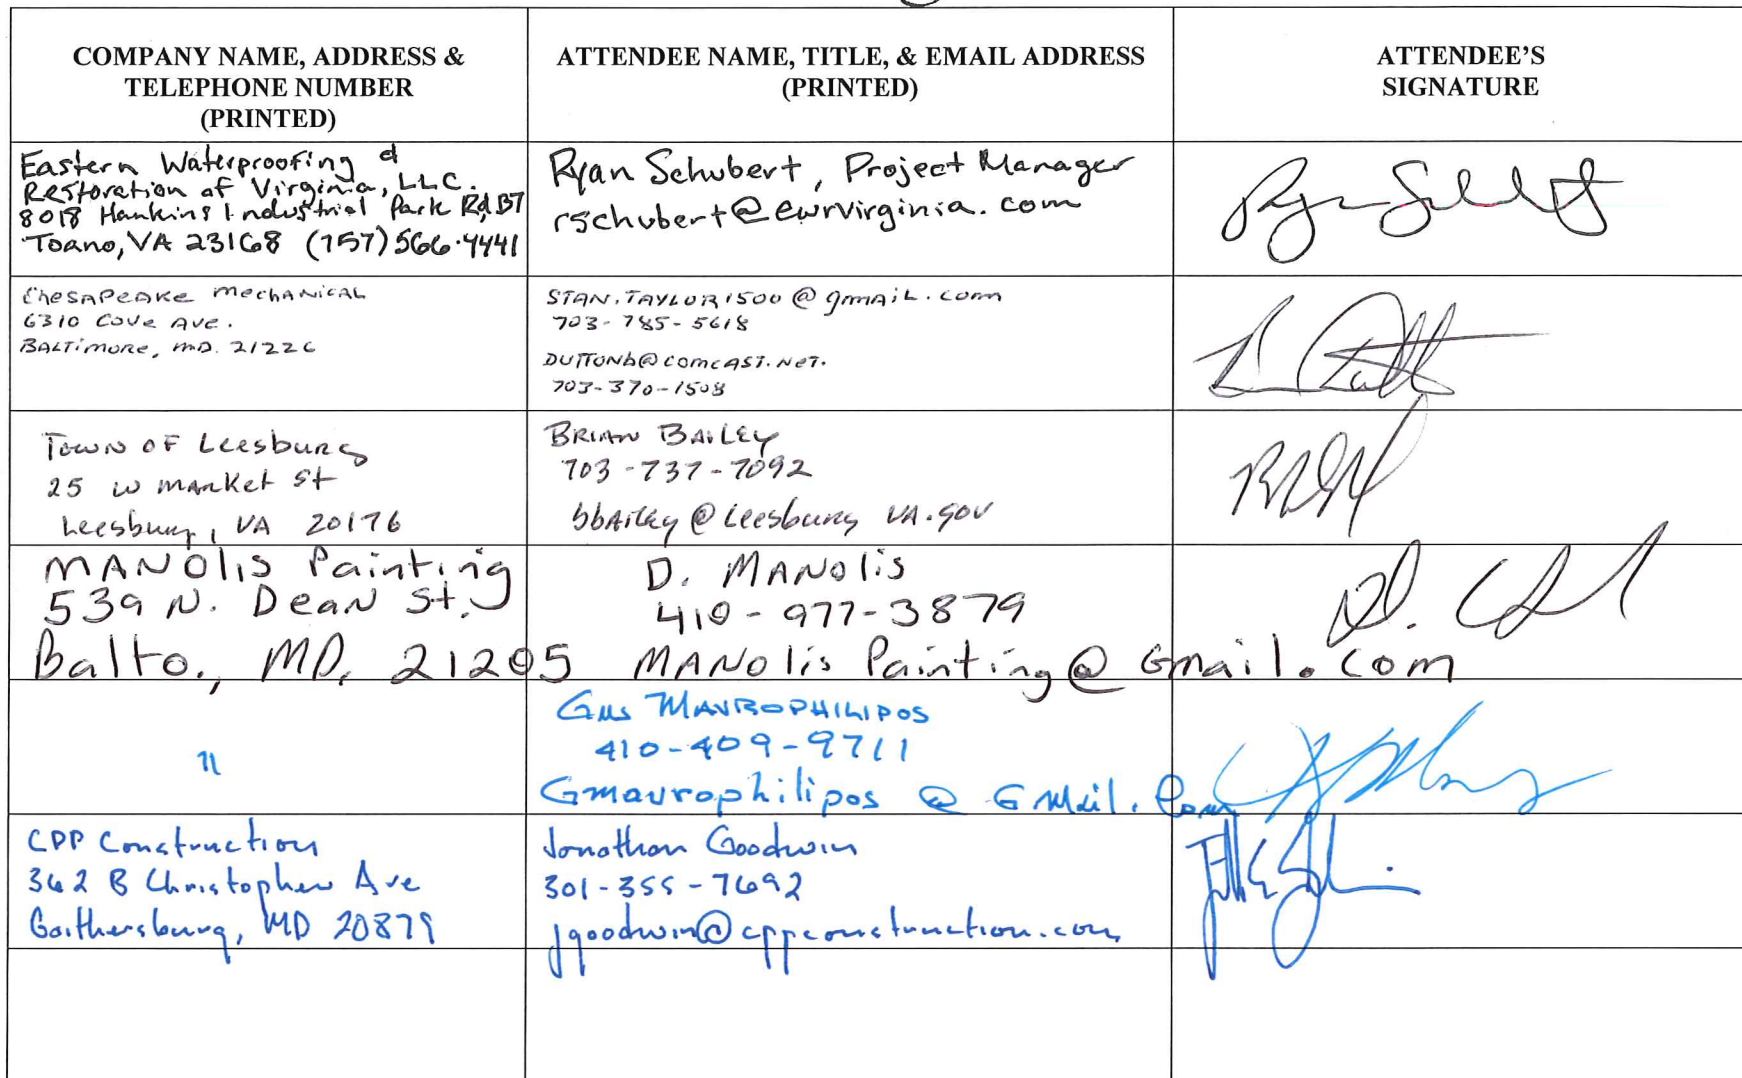 COMPANY NAME, ADDRESS &
TELEPHONE NUMBER
(PRINTED)
ATTENDEE NAME, TITLE, & EMAIL ADDRESS
(PRINTED)
ATTENDEE'S
SIGNATURE
Eastern Waterproofing &
Restoration of Virginia, LLC.
8018 Hankins Industrial Park Rd, B7
Toano, VA 23168 (757) 566-4441
Ryan Schubert, Project Manager
rschubert@ewrvirginia.com
Chesapeake Mechanical
6310 Cove Ave.
Baltimore, MD. 21226
STAN.TAYLOR1500@gmail.com
703-785-5618
DUTTONb@comcast.net.
703-370-1508
Town of Leesburg
25 W Market St
Leesburg, VA 20176
Brian Bailey
703-737-7092
bbailey@leesburg VA.gov
MANOlis Painting
539 N. Dean St.
Balto., MD, 21205
D. MANolis
410-977-3879
MANolis Painting@Gmail.com
"
Gus MAVROPHILIPOS
410-409-9711
Gmavrophilipos @ GMail.Com
CPP Construction
362 B Christopher Ave
Gaithersburg, MD 20879
Jonathan Goodwin
301-355-7692
jgoodwin@cppconstruction.com